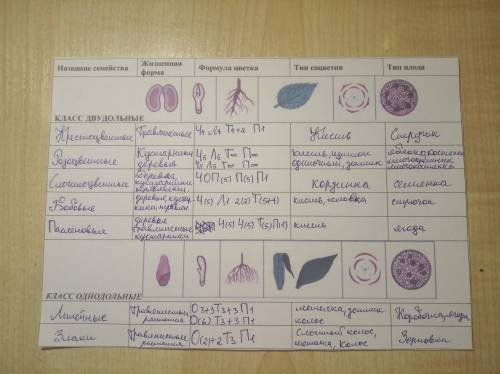 Название семейства Жизненная форма Формула цветка Тип соцветия Тип плода
КЛАСС ДВУДОЛЬНЫЕ
Крестоцветные Травянистые Ч4 Л4 Т4+2 П1 Кисть Стручок
Розоцветные Кустарники деревья Ч5 Л5 Т∞ П∞
Ч5 Л5 Т∞ П1 кисть, щиток одиночный, зонтик яблоко, костянка
Сложноцветные деревья, кустарники ЧОЛ(5) Т(5) П1 Корзинка семянка
Бобовые деревья, кустарники Ч(5) Л1 2(2) Т(5+1) кисть, головка стручок
Пасленовые деревья травянистые кустарники Ч(5) Ч(5) Т(5) П(1) кисть ягода
КЛАСС ОДНОДОЛЬНЫЕ
Лилейные Травянистые растения О3+3 Т3+3 П1
О(6) Т3+3 П1 метелка, зонтик колос Коробочка, ягода
Злаки Травянистые растения О(2)+2 Т3 П1 Сложный колос, метелка, колос Зерновка